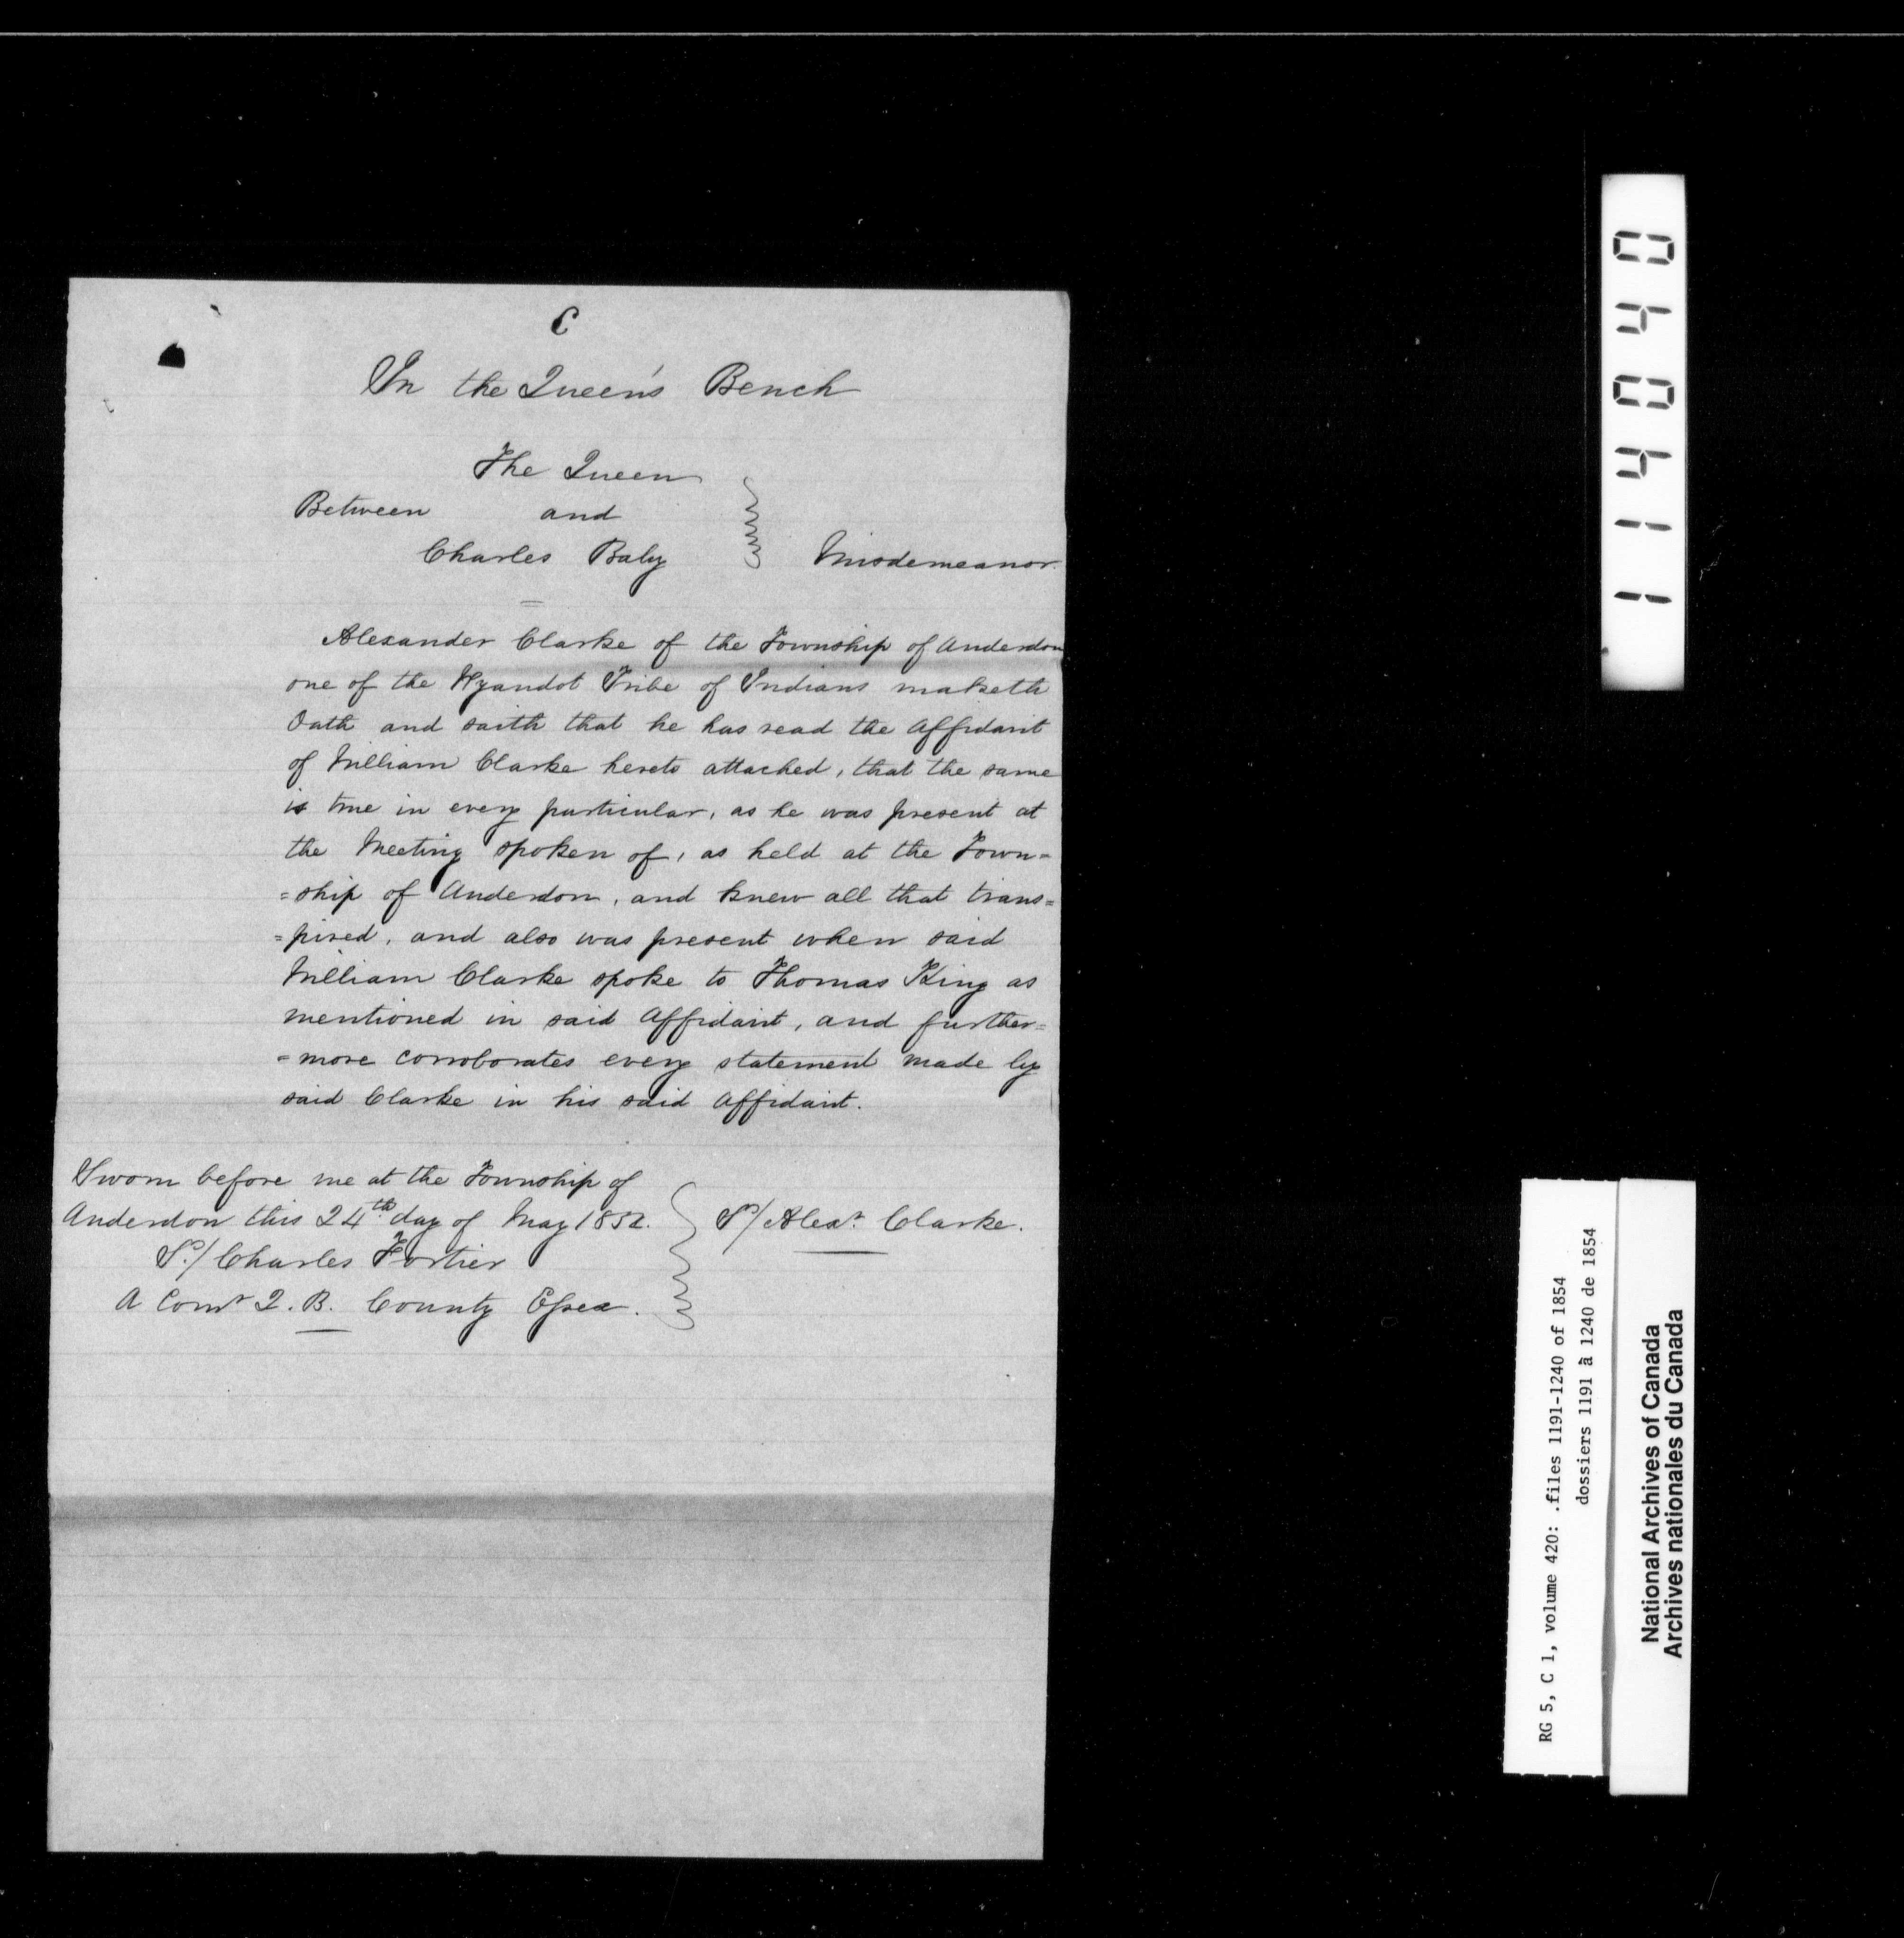 C
In the Queen's Bench
The Queen
Between and
Charles Baby Misdemeanor.
Alexander Clarke of the Township of Anderdon
one of the Wyandot Tribe of Indians maketh
Oath and saith that he has read the Affidavit
of William Clarke hereto attached, that the same
is true in every particular, as he was present at
the Meeting spoken of, as held at the Town=
=ship of Anderdon, and knew all that trans=
=pired, and also was present when said
William Clarke spoke to Thomas King as
mentioned in said Affidavit, and further=
=more corroborates every statement made by
said Clarke in his said Affidavit.
Sworn before me at the Township of
Anderdon this 24th day of May 1852.
S/ Alexr. Clarke.
S./ Charles Fortier
A Comr Q. B. County Essex.
114040
RG 5, C 1, volume 420: .files 1191-1240 of 1854
dossiers 1191 à 1240 de 1854
National Archives of Canada
Archives nationales du Canada